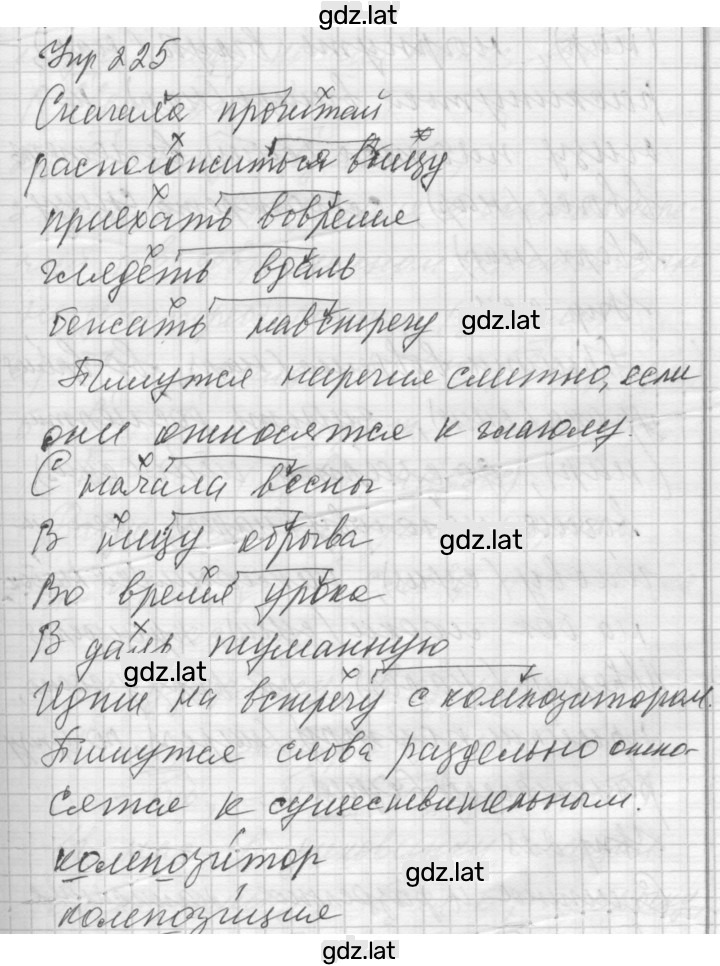 gdz.lat
Упр 225
Сначала прочитай
расположиться внизу
приехать вовремя
глядеть вдаль
бежать навстречу
gdz.lat
Пишутся наречия слитно, если
они относятся к глаголу.
С начала весны
В низу обрыва
gdz.lat
Во время урока
В даль туманную
gdz.lat
Идти на встречу с композитором.
Пишутся слова раздельно отно-
сятся к существительным.
композитор
gdz.lat
композиция
gdz.lat